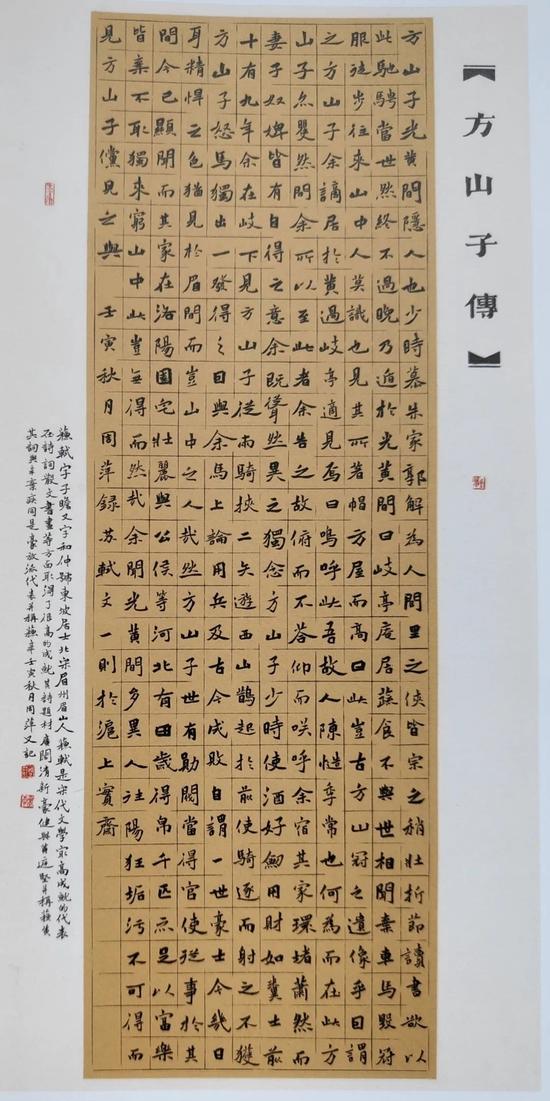 【方山子傳】
方山子光黄間隱人也少時慕朱家郭解為人閭里之俠皆宗之稍壯折節讀書欲以
此馳騁當世然終不遇晚乃遁於光黄間曰岐亭庵居蔬食不與世相聞棄車馬毀冠
服徒步往來山中人莫識也見其所著帽方屋而高曰此豈古方山冠之遺像乎因謂
之方山子余謫居於黄過岐亭適見焉曰嗚呼此吾故人陳慥季常也何為而在此方
山子亦矍然問余所以至此者余告之故俯而不荅仰而咲呼余宿其家環堵蕭然而
妻子奴婢皆有自得之意余既聳然異之獨念方山子少時使酒好劍用財如糞土前
十有九年余在岐下見方山子從兩騎挾二矢遊西山鵲起於前使騎逐而射之不獲
方山子怒馬獨出一發得之因與余馬上論用兵及古今成敗自謂一世豪士今幾日
耳精悍之色猶見於眉間而豈山中之人哉然方山子世有勛閥當得官使從事於其
間今已顯聞而其家在洛陽園宅壯麗與公侯等河北有田歲得帛千匹亦足以富樂
皆棄不取獨來窮山中此豈無得而然哉余聞光黄間多異人往陽狂垢污不可得而
見方山子儻見之與 壬寅秋月周萍録苏軾文一則於滬上寳齋
蘇軾字子瞻又字和仲號東坡居士北宋眉州眉山人蘇軾是宋代文學最高成就的代表
在詩詞散文書畫等方面取得了很高的成就其詩題材廣闊清新豪健與黄庭堅并稱蘇黄
其詞與辛棄疾同是豪放派代表并稱蘇辛壬寅秋月周萍又記